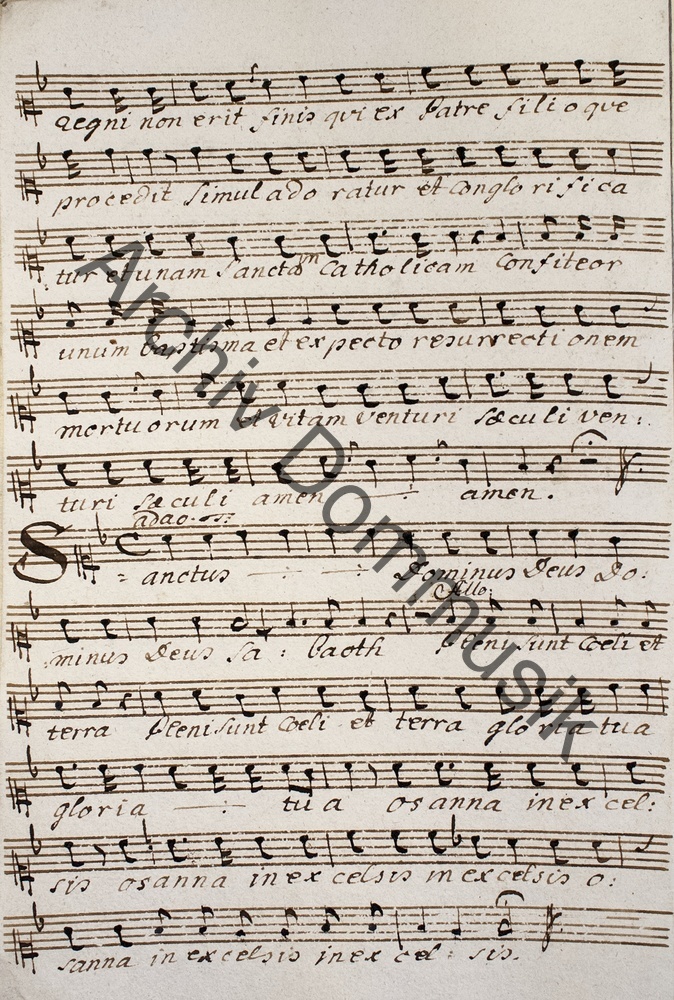 Regni non erit finis qui ex Patre filioque
procedit simul ado ratur et Conglo rifica
tur et unam Sanctam Catholicam Confiteor
unum baptisma et expecto resurrecti onem
mortuorum et vitam venturi sæculi ven:
turi sæculi amen amen.
adao.
Sanctus Dominus Deus Do:
Allo:
minus Deus Sa: baoth Pleni sunt Coeli et
terra Pleni sunt Coeli et terra gloria tua
gloria tua osanna in ex cel:
sis osanna in ex celsis in excelsis o:
sanna in excelsis in ex cel: sis.
Archiv Dommusik